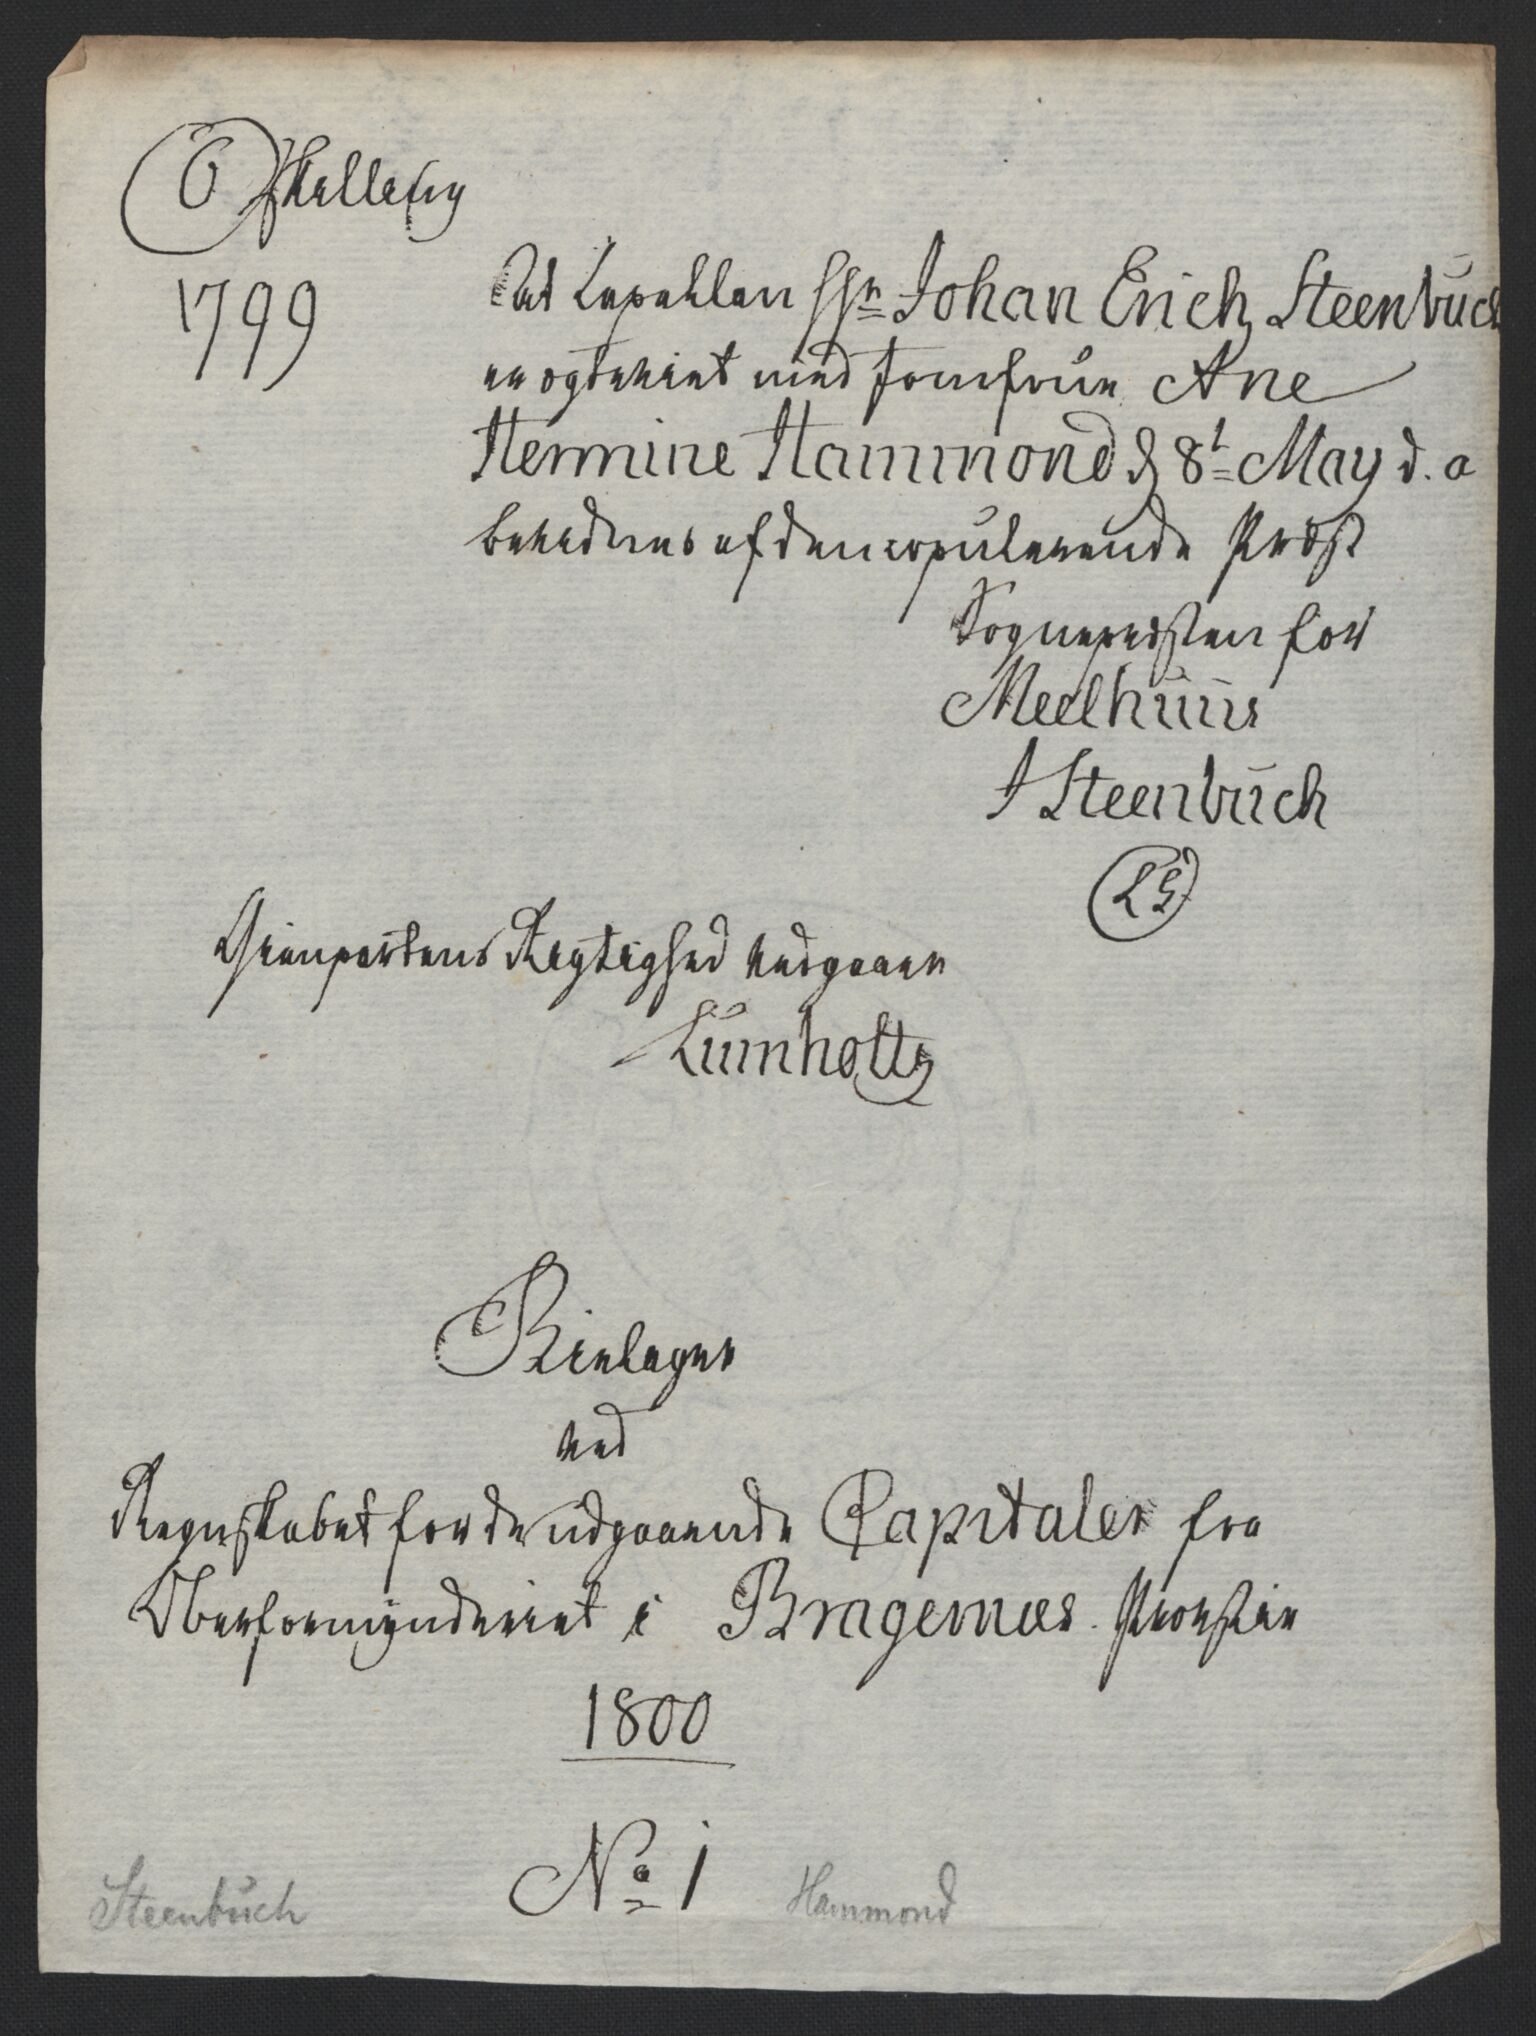 6 Skilling
1799
At Capellan Hr Johan Erich Steenbuch
er ogteviet med Jomfrue Ane
Hermine Hammond d 8t May d. a
bevidnes af den copulerende Præst
Sognepresten for
Meelhuus
J Steenbuch
LS
Gienpartens Rigtighed vedgaaer
Lumholtz
Bielager
ved
Regnskabet for de udgaaende Capitaler fra
Overformynderiet i Bragernæs Provstie
1800
No 1
Steenbuch
Hammond